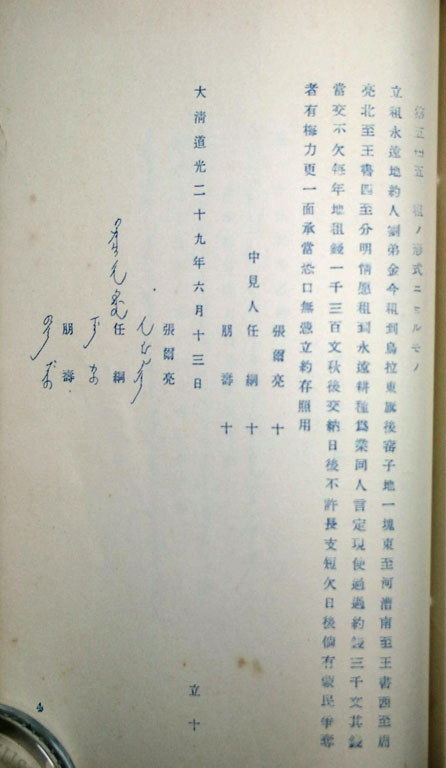 第五拾五 租ノ形式ニヨルモノ
立租永遠地約人劉弟金今租到烏拉東旗後窰子地一塊東至河漕南至王書西至周
亮北至王書四至分明情愿租到永遠耕種爲業同人言定現使過過約錢三千文其錢
當交不欠每年地租錢一千三百文秋後交納日後不許長支短欠日後倘有蒙民爭奪
者有極力更一面承當恐口無憑立約存照用
張爾亮 十
中見人 任綱 十
朋壽 十
大淸道光二十九年六月十三日 立十
張爾亮
任綱
朋壽